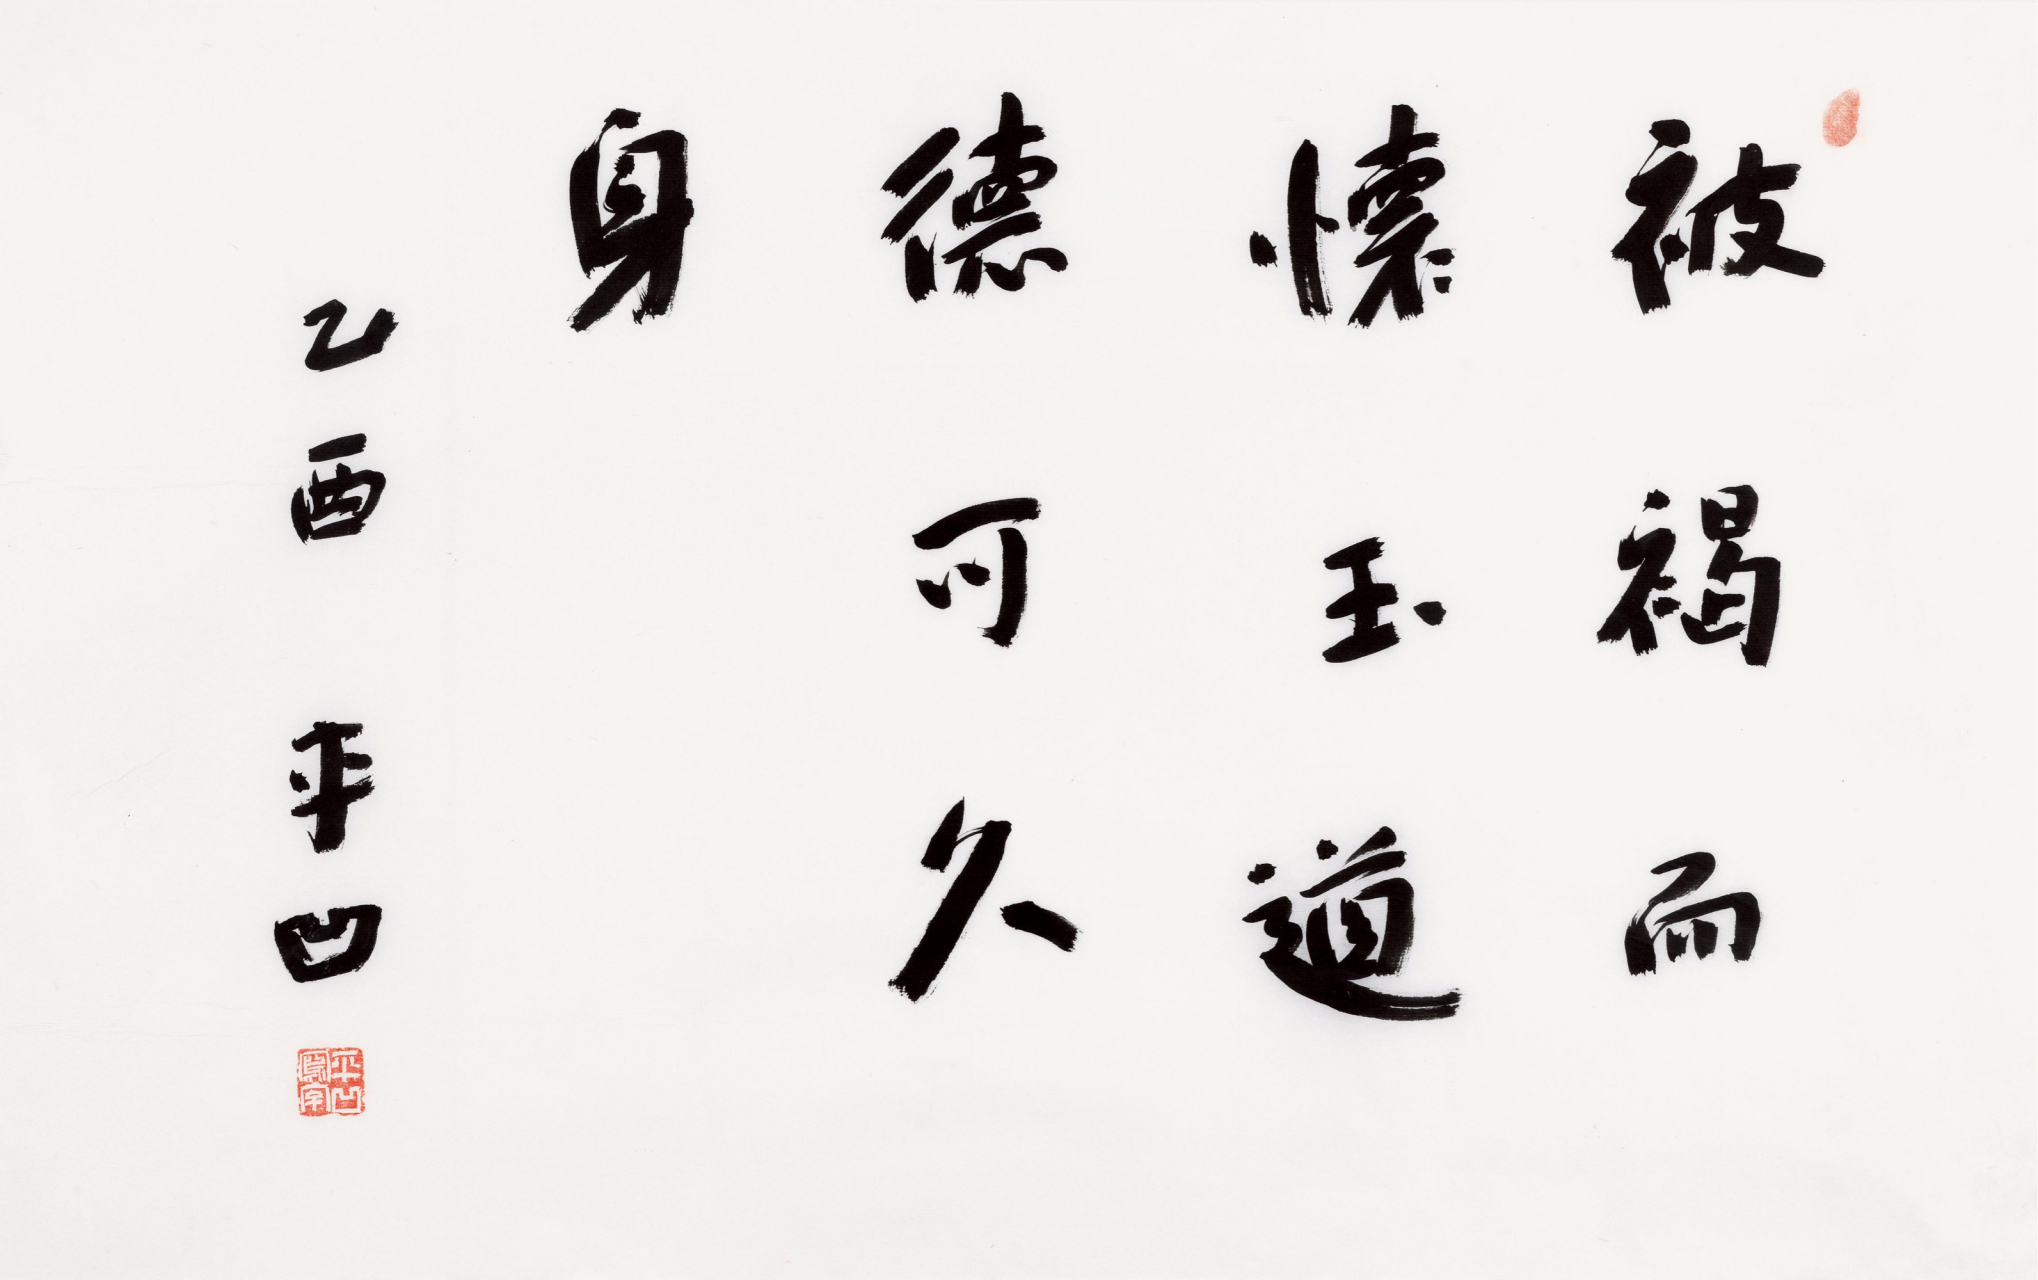 被褐而
懷玉道
德可久
身
乙酉 平凹
平凹